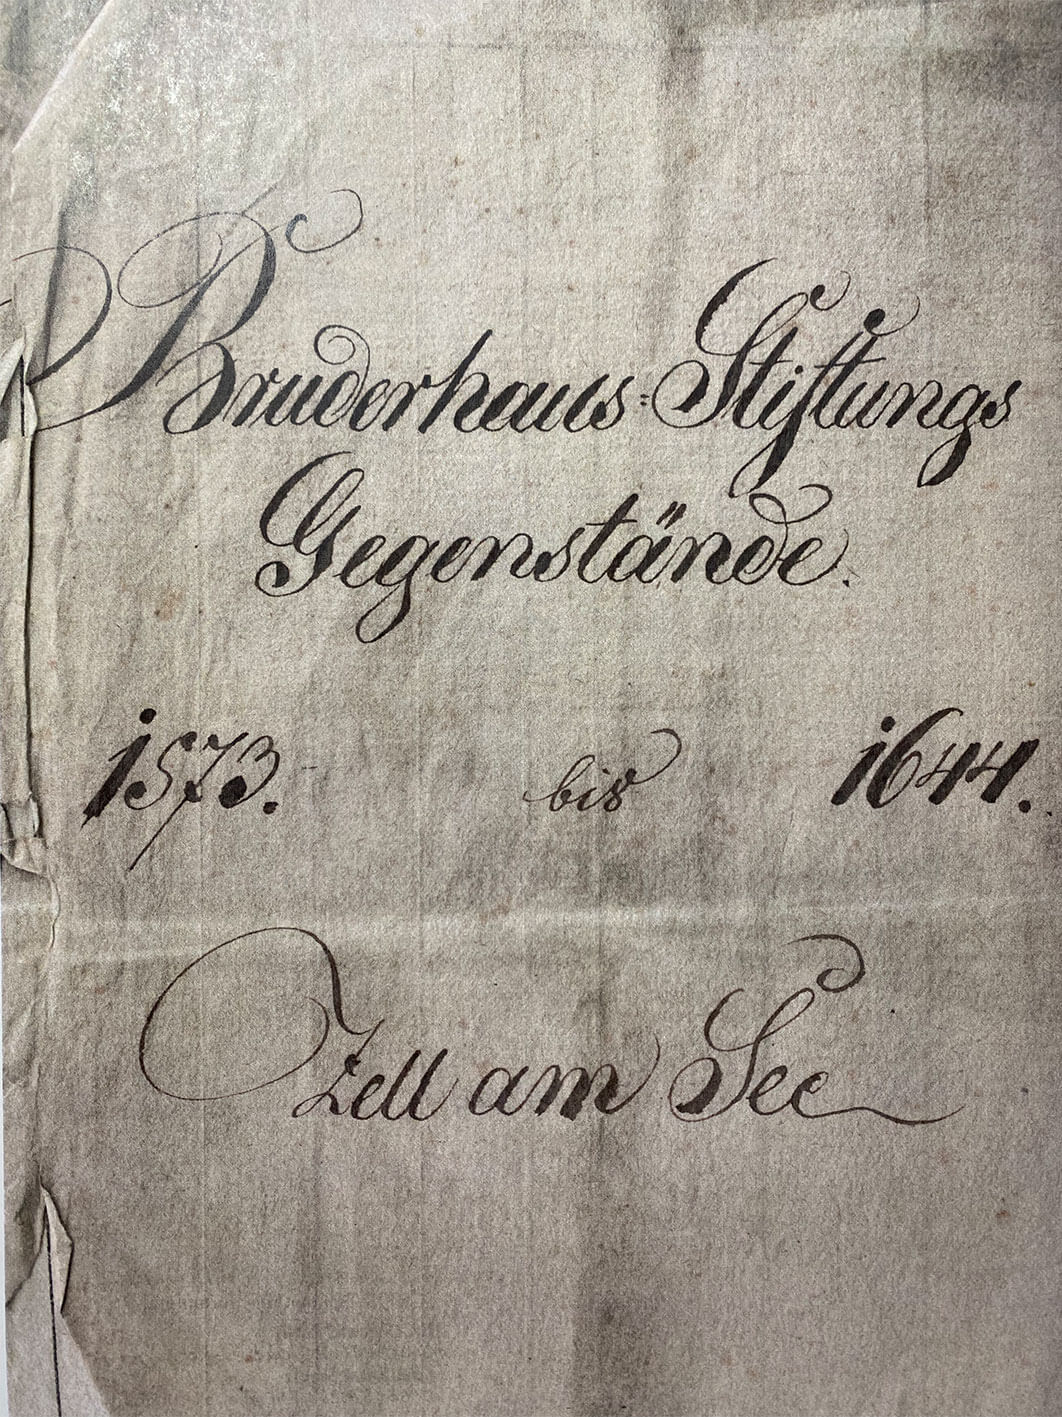 Bruderhaus=Stiftungs
Gegenstände.
1573. bis 1644.
Zell am See